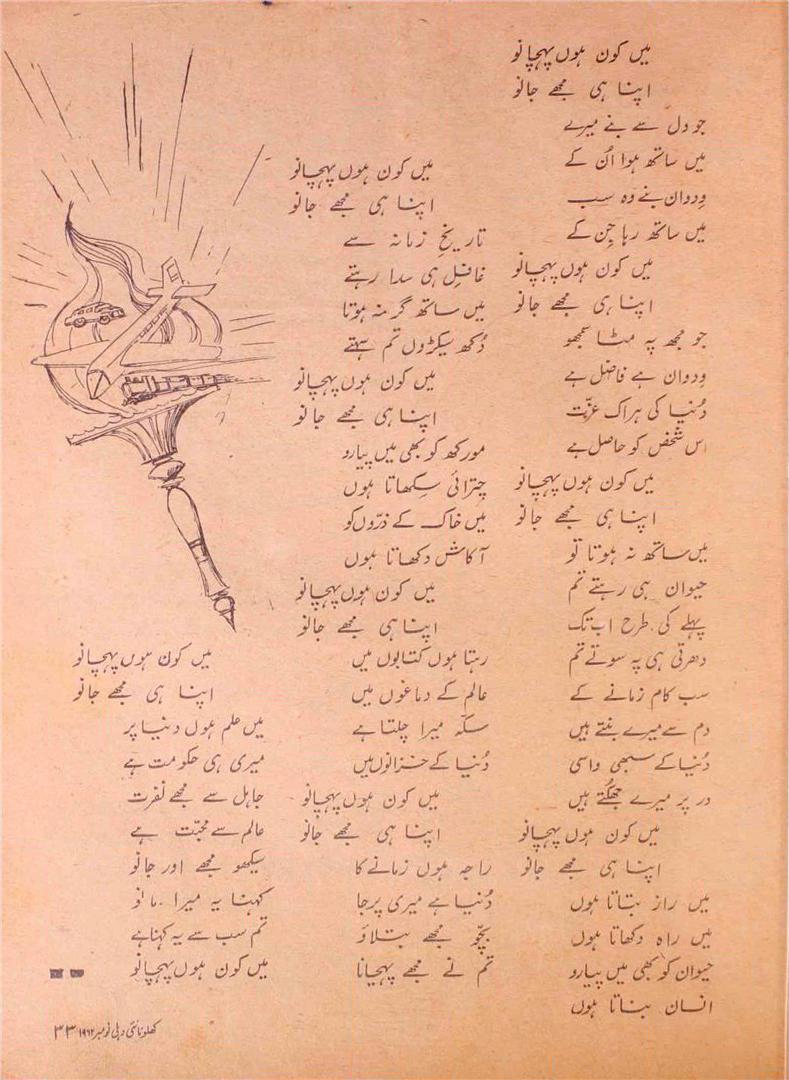 میں کون ہوں پہچانو
اپنا ہی مجھے جانو
جو دل سے بنے میرے
میں ساتھ ہوا اُن کے
وِدوان بنے وہ سب
میں ساتھ رہا جِن کے
میں کون ہوں پہچانو
اپنا ہی مجھے جانو
جو مجھ پہ مٹا سمجھو
وِدوان ہے فاضل ہے
دُنیا کی ہر اک عزّت
اس شخص کو حاصل ہے
میں کون ہوں پہچانو
اپنا ہی مجھے جانو
میں ساتھ نہ ہوتا تو
حیوان ہی رہتے تم
پہلے کی طرح اب تک
دھرتی ہی پہ سوتے تم
سب کام زمانے کے
دم سے میرے بنتے ہیں
دُنیا کے سبھی واسی
در پر میرے جھکتے ہیں
میں کون ہوں پہچانو
اپنا ہی مجھے جانو
میں راز بتاتا ہوں
میں راہ دکھاتا ہوں
حیوان کو بھی میں پیارو
انسان بناتا ہوں
میں کون ہوں پہچانو
اپنا ہی مجھے جانو
تاریخِ زمانہ سے
غافل ہی سدا رہتے
میں ساتھ گر نہ ہوتا
دُکھ سیکڑوں تم سہتے
میں کون ہوں پہچانو
اپنا ہی مجھے جانو
مورکھ کو بھی میں پیارو
چترائی سِکھاتا ہوں
میں خاک کے ذرّوں کو
آکاش دکھاتا ہوں
میں کون ہوں پہچانو
اپنا ہی مجھے جانو
رہتا ہوں کتابوں میں
عالم کے دماغوں میں
سکّہ میرا چلتا ہے
دُنیا کے خزانوں میں
میں کون ہوں پہچانو
اپنا ہی مجھے جانو
راجہ ہوں زمانے کا
دُنیا ہے میری پرجا
بچّو مجھے بتلاؤ
تم نے مجھے پہچانا
میں کون ہوں پہچانو
اپنا ہی مجھے جانو
میں علم ہوں دنیا پر
میری ہی حکومت ہے
جاہل سے مجھے نفرت
عالم سے محبّت ہے
سیکھو مجھے اور جانو
کہنا یہ میرا مانو
تم سب سے یہ کہنا ہے
میں کون ہوں پہچانو
کھلونا نئی دہلی نومبر ۱۹۶۲ ۳۳